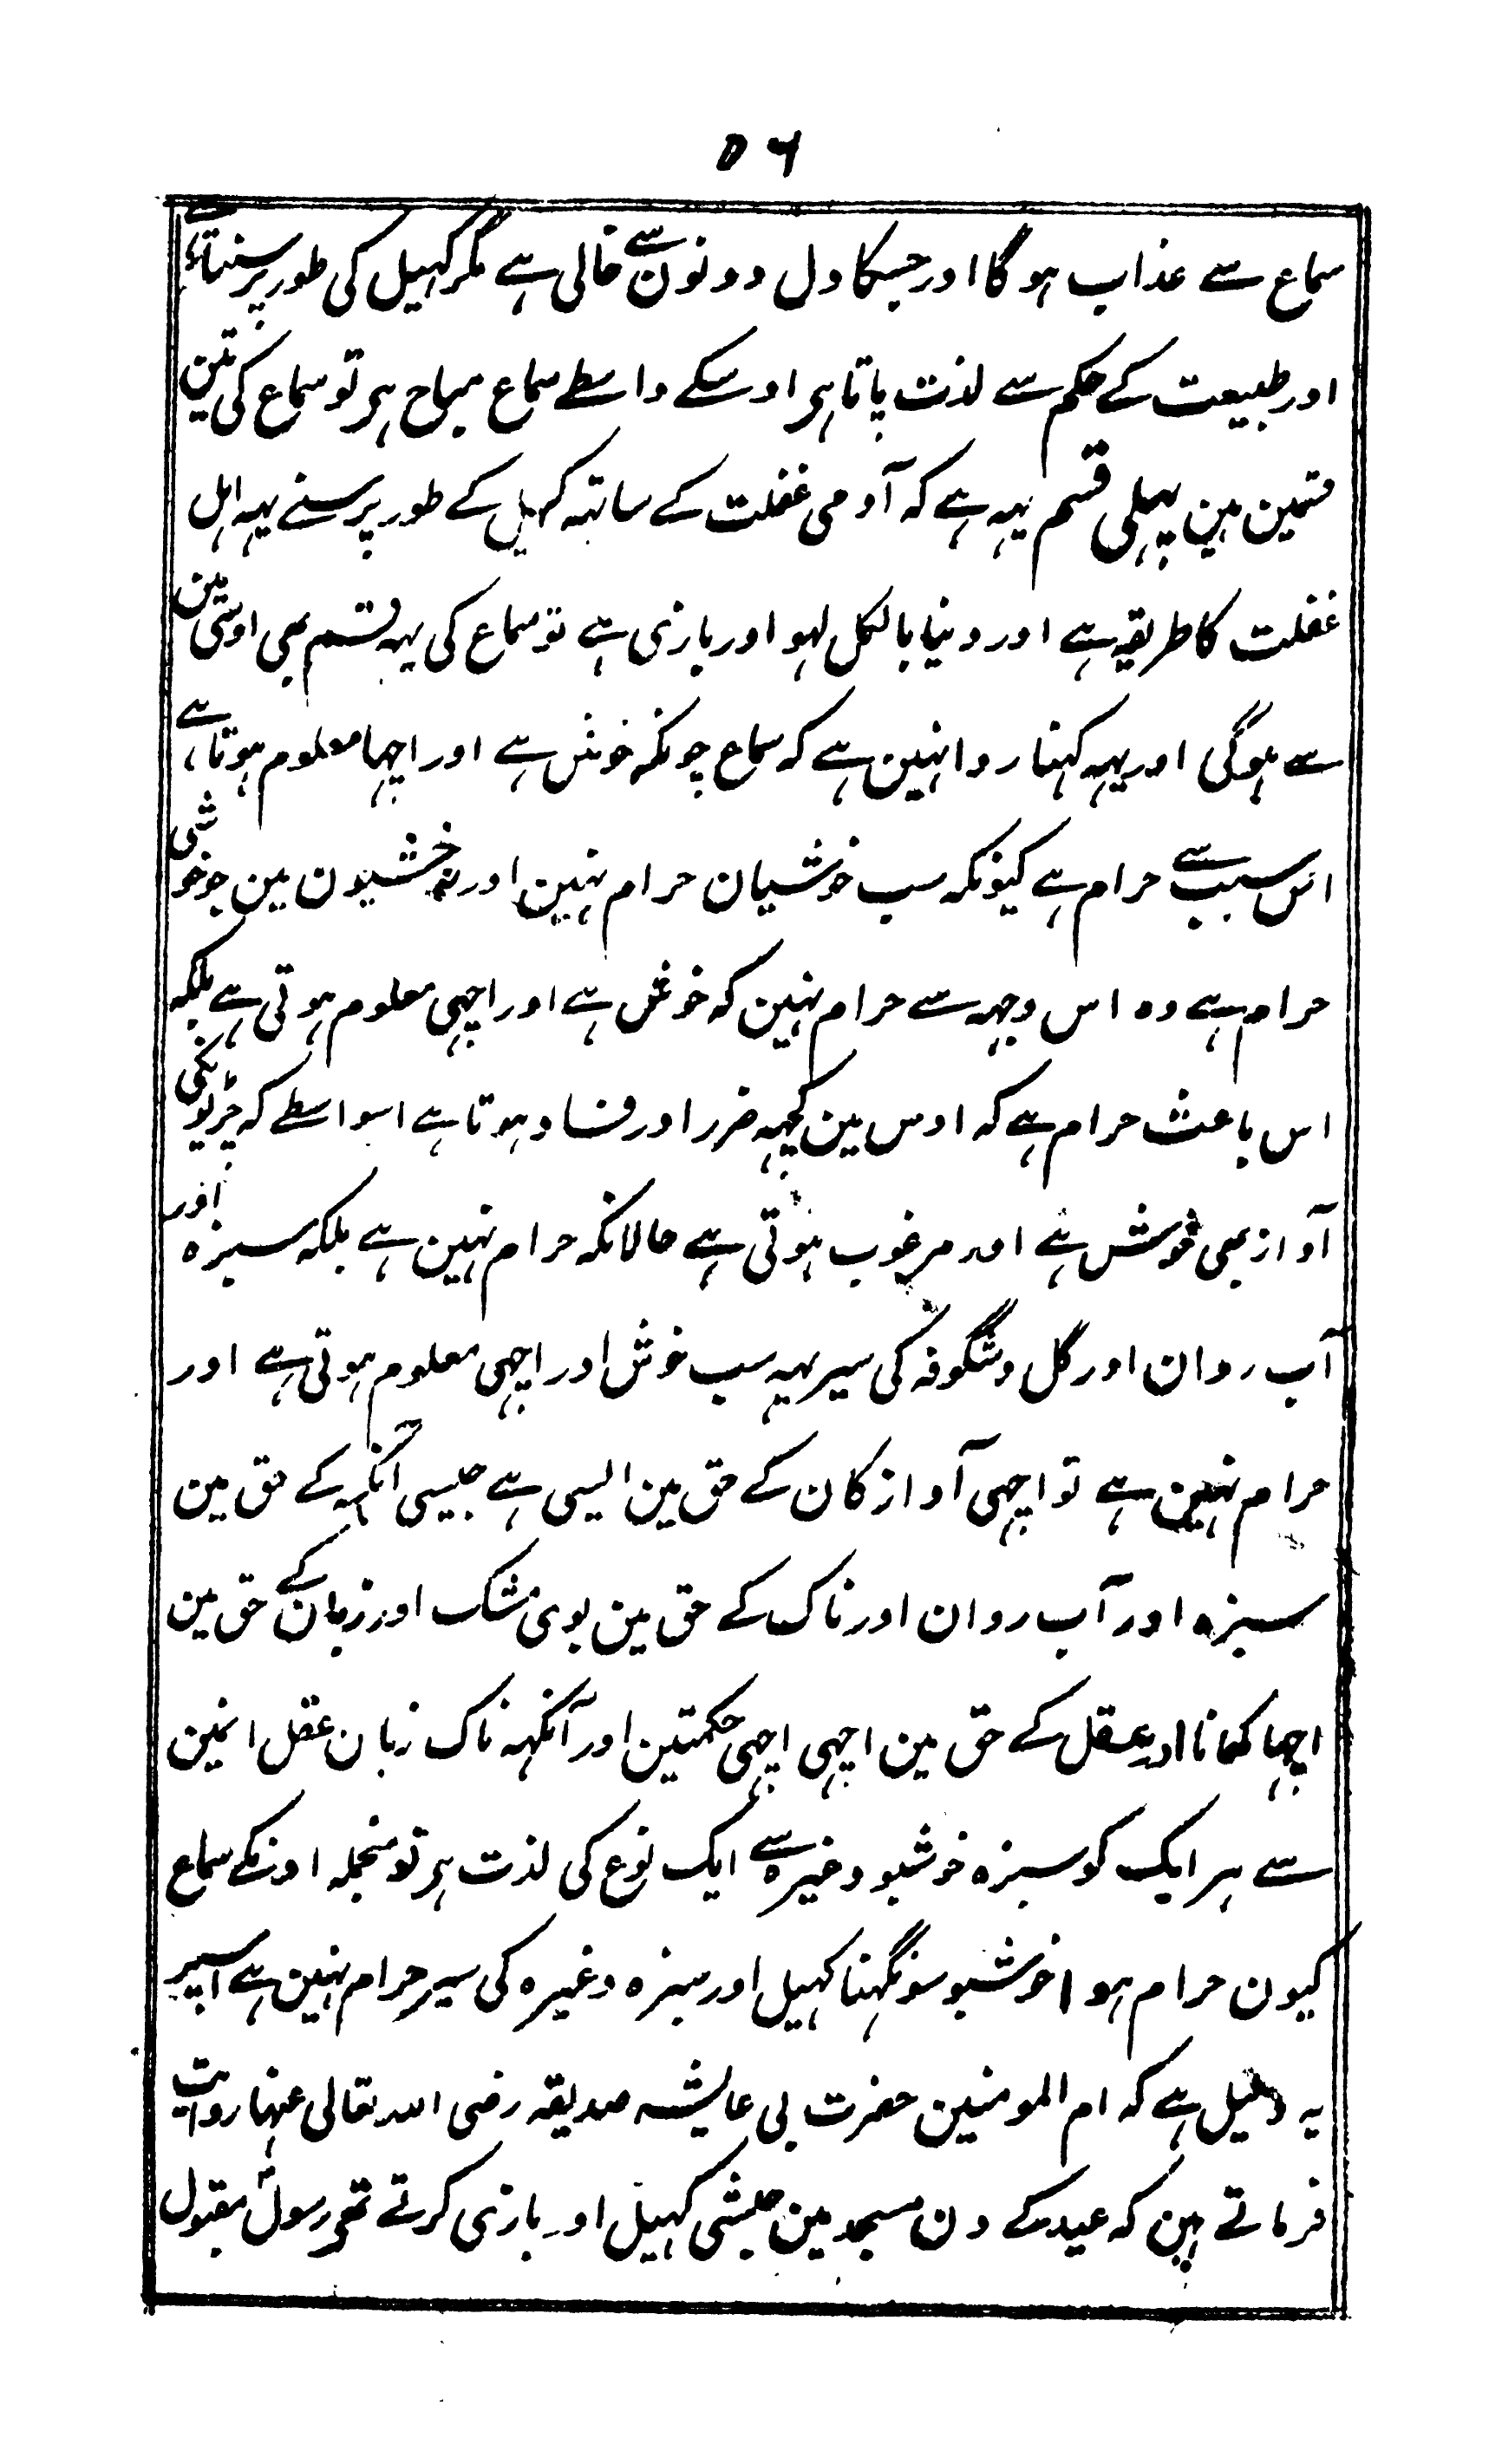 ۵۶
سماع سے عذاب ہوگا اور جسکا دل دونون سے خالی ہے مگر کہیل کی طور پر سنتا ہے
اور طبیعت کے حکم سے لذت پاتا ہر اوسکے واسطے سماع مباح ہر تو سماع کی تین
قسمین ہین پہلی قسم یہہ ہے کہ آدمی غفلت کے ساتہہ کہیل کے طور پر سنے یہہ اہل
غفلت کا طریقہ ہے اور دنیا بالکل لہو اور بازی ہے تو سماع کی یہہ قسم بھی اوسی مین
سے ہوگی اور یہہ کہنا روا نہین ہے کہ سماع چونکہ خوش ہے اور اچہا معلوم ہوتا ہے
اس سبب سے حرام ہے کیونکہ سب خوشیان حرام نہین اور خوشیون مین جو خوشی
حرام ہے وہ اس وجہہ سے حرام نہین کہ خوش ہے اور اچہی معلوم ہوتی ہے بلکہ
اس باعث حرام ہے کہ اوس مین کچہہ ضرر اور فساد ہوتا ہے اسواسطے کہ چڑیونکی
آواز بھی خوش ہے اور مرغوب ہوتی ہے حالانکہ حرام نہین ہے بلکہ سبزہ اور
آب روان اور گل و شگوفہ کی سیر یہہ سب خوش اور اچہی معلوم ہوتی ہے اور
حرام نہین ہے تو اچہی آواز کان کے حق مین ایسی ہے جیسی آنکہہ کے حق مین
سبزہ اور آب روان اور ناک کے حق مین بوی مشک اور زبان کے حق مین
اچہا کھانا اور عقل کے حق مین اچہی اچہی حکمتین اور آنکہہ ناک زبان عقل انمین
سے ہر ایک کو سبزہ خوشبو وغیرہ سے ایک نوع کی لذت ہر تو منجملہ اونکے سماع
کیون حرام ہو ا خوشبو سونگہنا کہیل اور سبزہ وغیرہ کی سیر حرام نہین ہے اسپر
یہ دلیل ہے کہ ام المومنین حضرت بی عایشہ صدیقہ رضی اللہ تعالی عنہا روایت
فرماتے ہین کہ عید کے دن مسجد مین حبشی کہیل اور بازی کرتے تھی رسولؐ مقبول